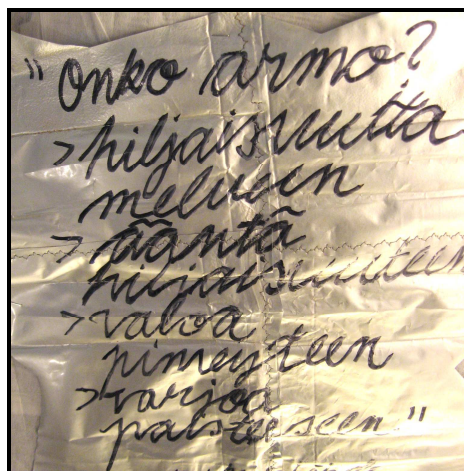 "Onko armo?
>hiljaisuutta
meluun
>ääntä
hiljaisuuteen
>valoa
pimeyteen
>varjoa
paisteeseen"